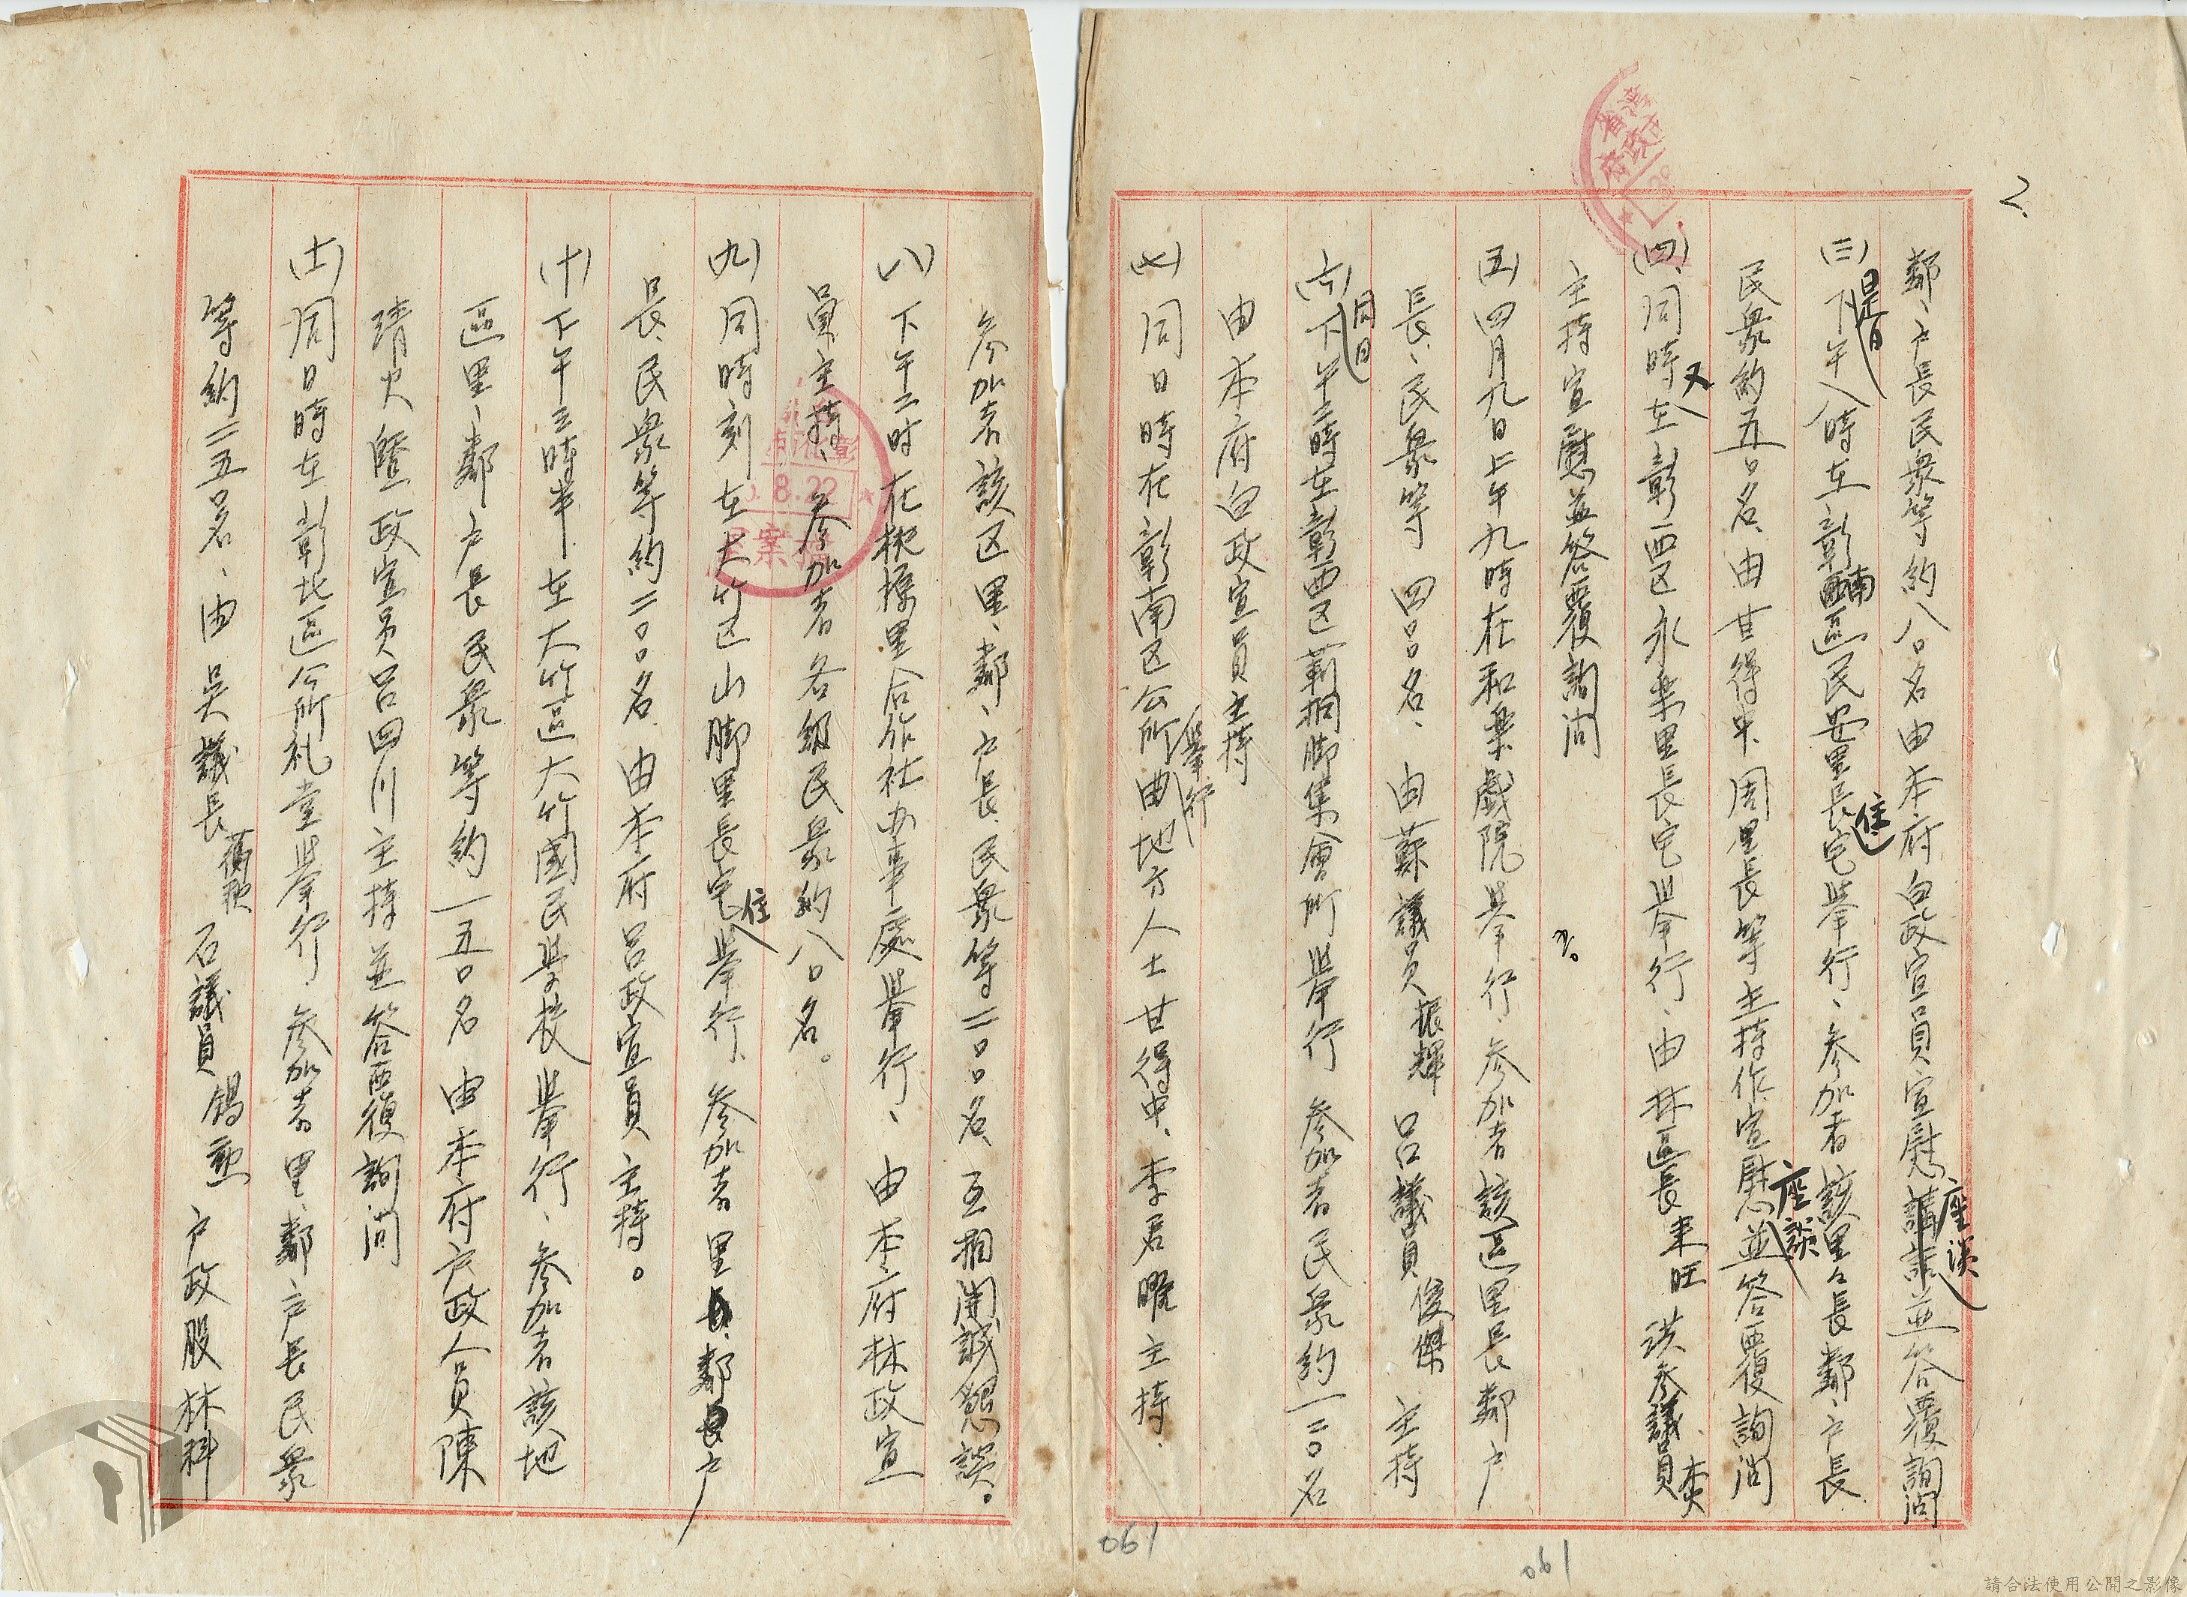 2.
鄰、戶長民眾等約八〇名由本府白政宣員宣慰講話並答覆詢問
座談
(三)下午八時在彰西區民安里長宅舉行、參加者該里々長鄰、戶長
是日
南
住
民眾約五〇名、由甘得中、周里長等主持作宣慰並答覆詢問
座談
(四)同時在彰西区永樂里長宅舉行、由林區長來旺 洪參議員
又
主持宣慰並答覆詢問
(五)四月九日上午九時在和樂戲院舉行、參加者該區里長鄰戶
長、民眾等 四〇〇名、由蘇議員振輝 呂議員俊傑 主持
(六)下午二時在彰西区莿桐脚集會所舉行 參加者民眾約一二〇名
同日
由本府白政宣員主持
(七)同日時在彰南区公所由地方人士甘得中、李君曜主持、
舉行
參加者該区里、鄰、戶長、民眾等二〇〇名、互相開誠懇談。
(八)下午二时在桃源里合作社办事處舉行、由本府林政宣
員主持、參加者各級民眾約八〇名。
(九)同時刻在大竹区山脚里長宅舉行、參加者里長、鄰長戶
住
長、民眾等約二〇〇名 由本府呂政宣員主持。
(十)下午三時半在大竹區大竹國民學校舉行、參加者該地
區里、鄰戶長民眾等約一五〇名 由本府戶政人員陳
清火暨政宣員呂四川主持並答覆詢問
(十一)同日時在彰北區公所礼堂舉行、參加者里、鄰戶長民眾
等約二五〇名、由吳議長蘅秋 石議員錫勳 戶政股林科
8.22
檔案
061
061
請合法使用公開之影像